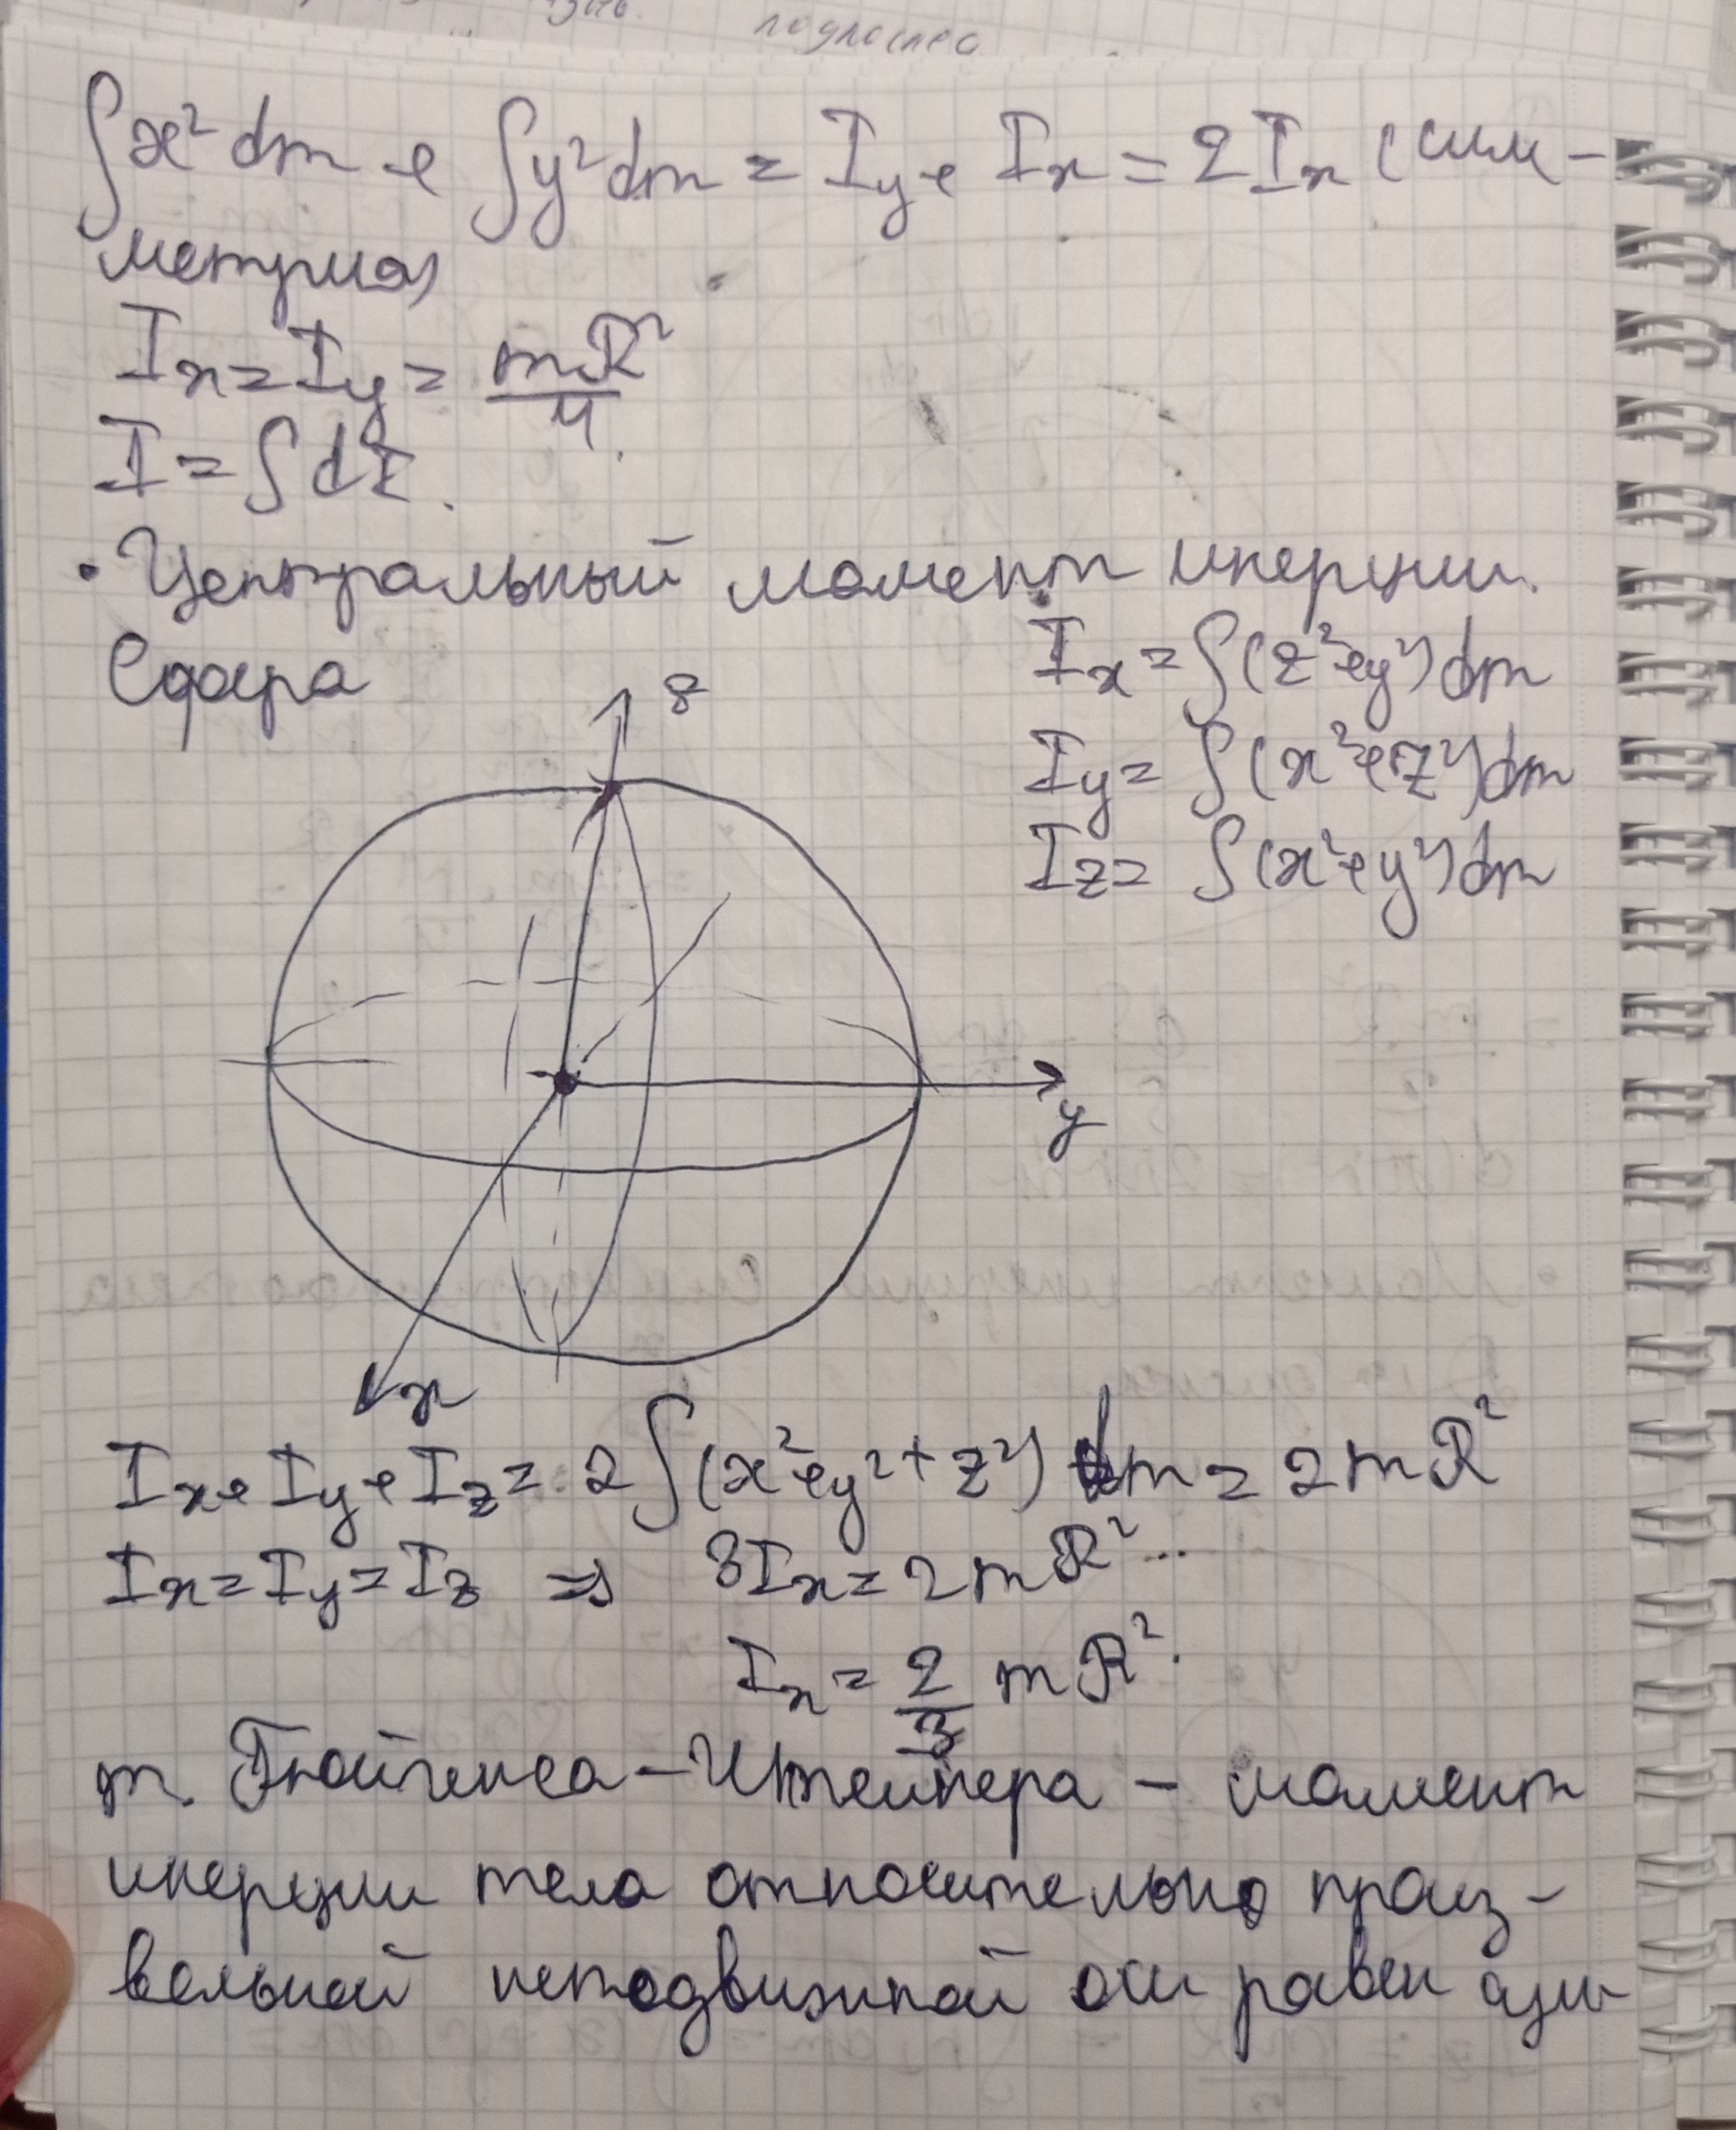 подносле
∫x² dm + ∫y² dm = Iy + Ix = 2Ix (сим-
метрия)
Ix = Iy = mR²/4.
I = ∫dI.
• Центральный момент инерции.
Сфера
Ix = ∫(z²+y²)dm
Iy = ∫(x²+z²)dm
Iz = ∫(x²+y²)dm
z
y
x
Ix + Iy + Iz = 2∫(x²+y²+z²) dm = 2mR²
Ix = Iy = Iz ⇒ 3Ix = 2mR²
Ix = 2/3 mR².
т. Гюйгенса – Штейнера – момент
инерции тела относительно произ-
вольной неподвижной оси равен